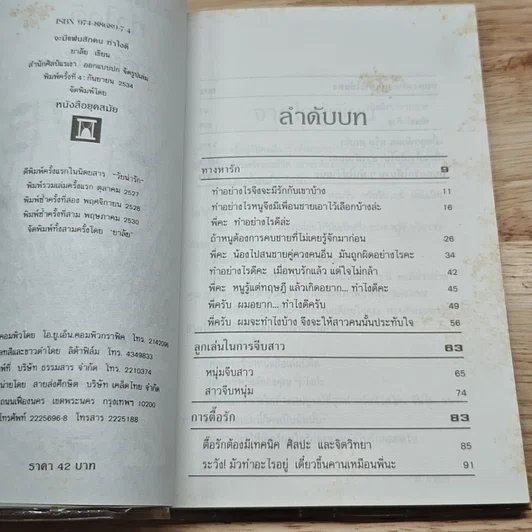 ISBN 974-88681-7-4
จะมีแฟนสักคน ทำไงดี
ยาลัย เขียน
สำนักศิลป์แรเงา : ออกแบบปก จัดรูปเล่ม
พิมพ์ครั้งที่ 4 : กันยายน 2534
จัดพิมพ์โดย
หนังสือยุคสมัย
ตีพิมพ์ครั้งแรกในนิตยสาร "วัยน่ารัก"
พิมพ์รวมเล่มครั้งแรก ตุลาคม 2527
พิมพ์ซ้ำครั้งที่สอง พฤศจิกายน 2528
พิมพ์ซ้ำครั้งที่สาม พฤษภาคม 2530
จัดพิมพ์ทั้งสามครั้งโดย 'ยาลัย'
คอมพิวโดย โอ.ยู.เอ็น.คอมพิวกราฟิค โทร. 2142096
เพลทสีและขาวดำโดย ลิต้าฟิล์ม โทร. 4349833
พ์ที่ บริษัท ธรรมสาร จำกัด โทร. 2210374
หน่ายโดย สายส่งศึกษิต บริษัท เคล็ดไทย จำกัด
ถนนเฟื่องนคร เขตพระนคร กรุงเทพฯ 10200
โทรศัพท์ 2225696-8 โทรสาร 2225188
ราคา 42 บาท
ลำดับบท
ทางหารัก 9
ทำอย่างไรจึงจะมีรักกับเขาบ้าง 11
ทำอย่างไรหนูจึงมีเพื่อนชายเอาไว้เลือกบ้างล่ะ 16
พี่คะ ทำอย่างไรดีล่ะ
ถ้าหนูต้องการคบชายที่ไม่เคยรู้จักมาก่อน 26
พี่คะ น้องไปสนชายคู่ควงคนอื่น มันถูกผิดอย่างไรคะ 34
ทำอย่างไรดีคะ เมื่อพบรักแล้ว แต่ใจไม่กล้า 42
พี่คะ หนูรู้แต่ทฤษฎี แล้วเกิดอยาก... ทำไงดีคะ 45
พี่ครับ ผมอยาก... ทำไงดีครับ 49
พี่ครับ ผมจะทำไงบ้าง จึงจะให้สาวคนนั้นประทับใจ 56
ลูกเล่นในการจีบสาว 63
หนุ่มจีบสาว 65
สาวจีบหนุ่ม 74
การตื๊อรัก 83
ตื๊อรักต้องมีเทคนิค ศิลปะ และจิตวิทยา 85
ระวัง! มัวทำอะไรอยู่ เดี๋ยวขึ้นคานเหมือนพี่นะ 91